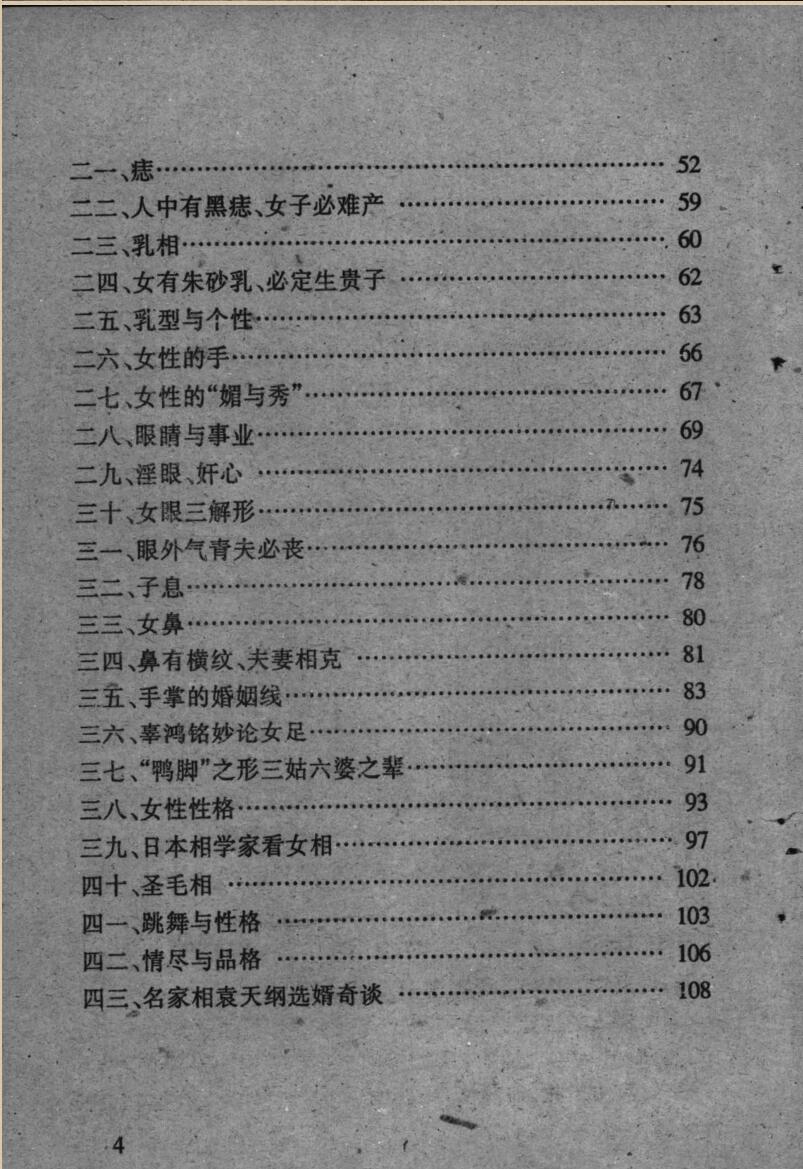 二一、痣………………………………………… 52
二二、人中有黑痣、女子必难产 ………………………… 59
二三、乳相………………………………………… 60
二四、女有朱砂乳、必定生贵子 ………………………… 62
二五、乳型与个性………………………………………… 63
二六、女性的手………………………………………… 66
二七、女性的“媚与秀”………………………………… 67
二八、眼睛与事业………………………………………… 69
二九、淫眼、奸心 ………………………………………… 74
三十、女眼三解形………………………………………… 75
三一、眼外气青夫必丧………………………………… 76
三二、子息………………………………………… 78
三三、女鼻………………………………………… 80
三四、鼻有横纹、夫妻相克 ………………………… 81
三五、手掌的婚姻线………………………………… 83
三六、辜鸿铭妙论女足………………………………… 90
三七、“鸭脚”之形三姑六婆之辈………………………… 91
三八、女性性格………………………………………… 93
三九、日本相学家看女相………………………………… 97
四十、圣毛相 ………………………………………… 102
四一、跳舞与性格 ………………………………… 103
四二、情尽与品格 ………………………………… 106
四三、名家相袁天纲选婿奇谈 ………………………… 108
4